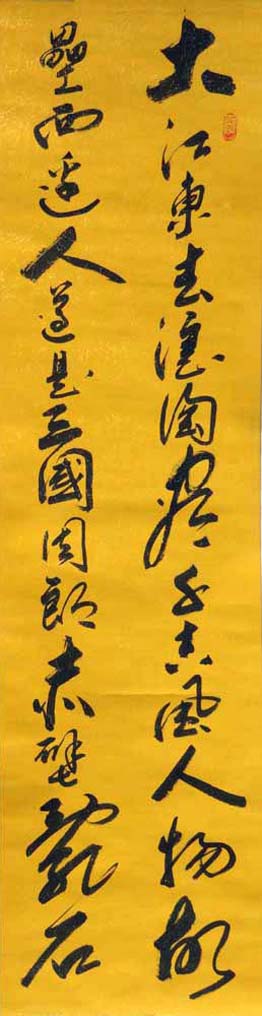 大江東去浪淘盡千古風人物故
壘西邊人道是三國周郎赤壁亂石